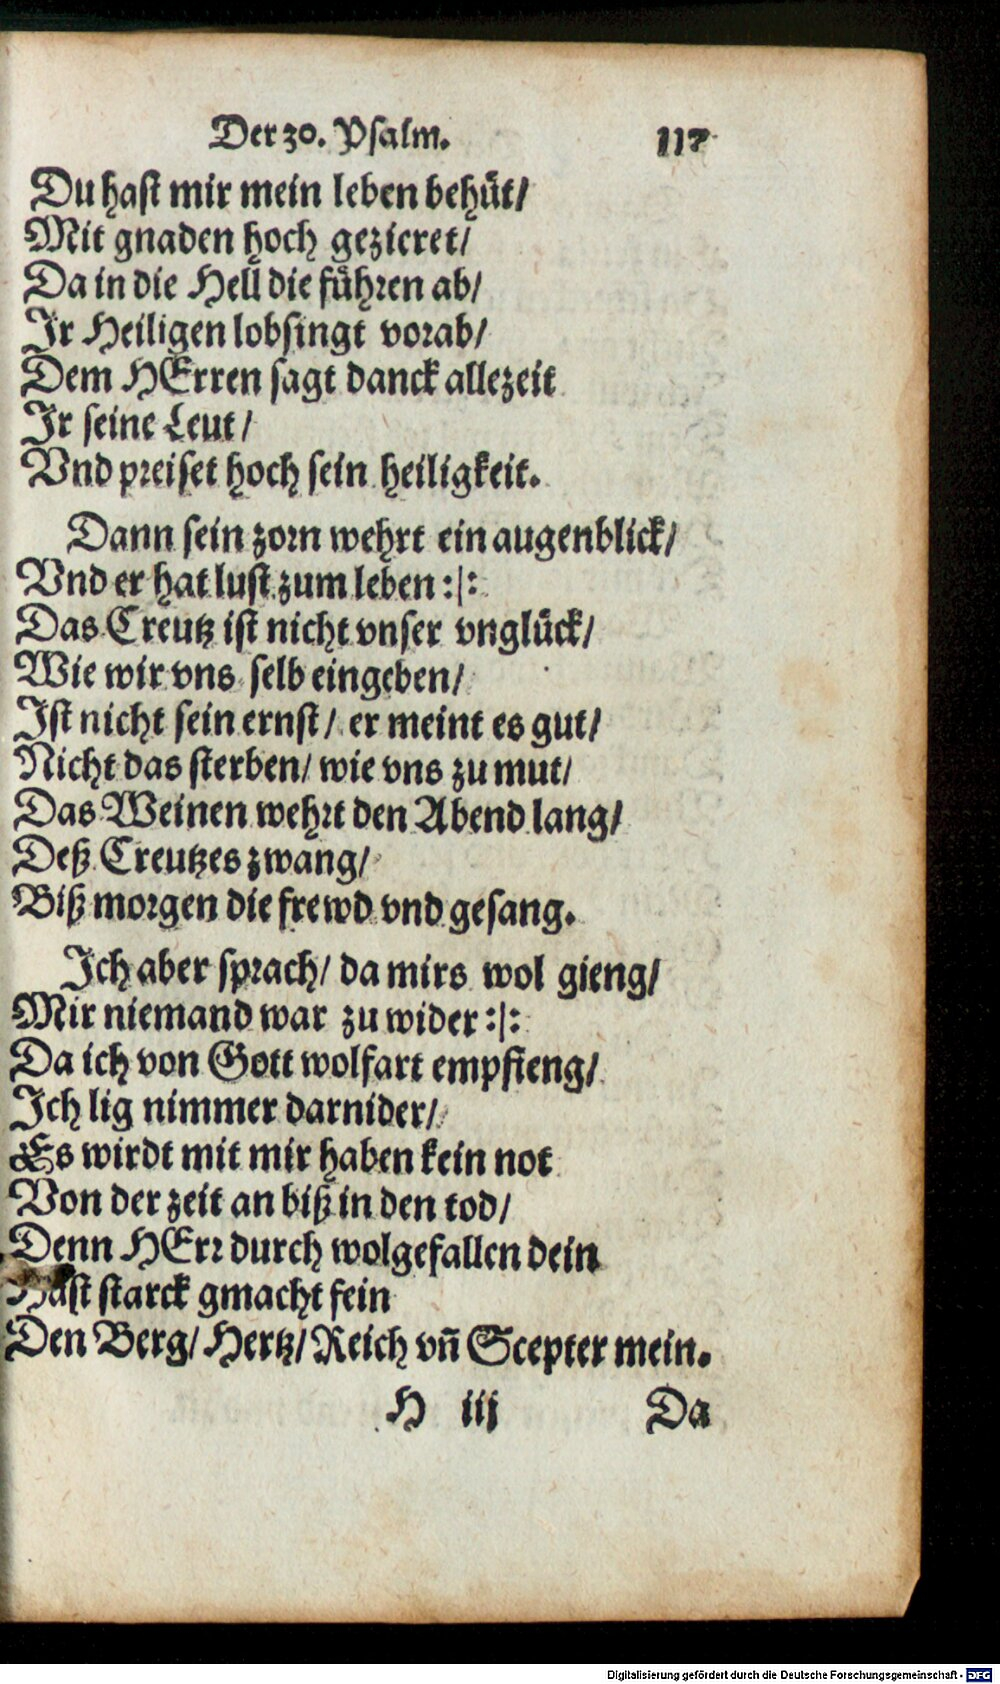 Der 30. Psalm. 117
Du hast mir mein leben behüt/
Mit gnaden hoch gezieret/
Da in die Hell die führen ab/
Ir Heiligen lobsingt vorab/
Dem HErren sagt danck allezeit
Ir seine Leut/
Vnd preiset hoch sein heiligkeit.
Dann sein zorn wehrt ein augenblick/
Vnd er hat lust zum leben :|:
Das Creutz ist nicht vnser vnglück/
Wie wir vns selb eingeben/
Ist nicht sein ernst/ er meint es gut/
Nicht das sterben/ wie vns zu mut/
Das Weinen wehrt den Abend lang/
Deß Creutzes zwang/
Biß morgen die frewd vnd gesang.
Ich aber sprach/ da mirs wol gieng/
Mir niemand war zu wider :|:
Da ich von Gott wolfart empfieng/
Ich lig nimmer darnider/
Es wirdt mit mir haben kein not
Von der zeit an biß in den tod/
Denn HErr durch wolgefallen dein
Hast starck gmacht fein
Den Berg/ Hertz/ Reich vñ Scepter mein.
H iij Da
Digitalisierung gefördert durch die Deutsche Forschungsgemeinschaft - DFG